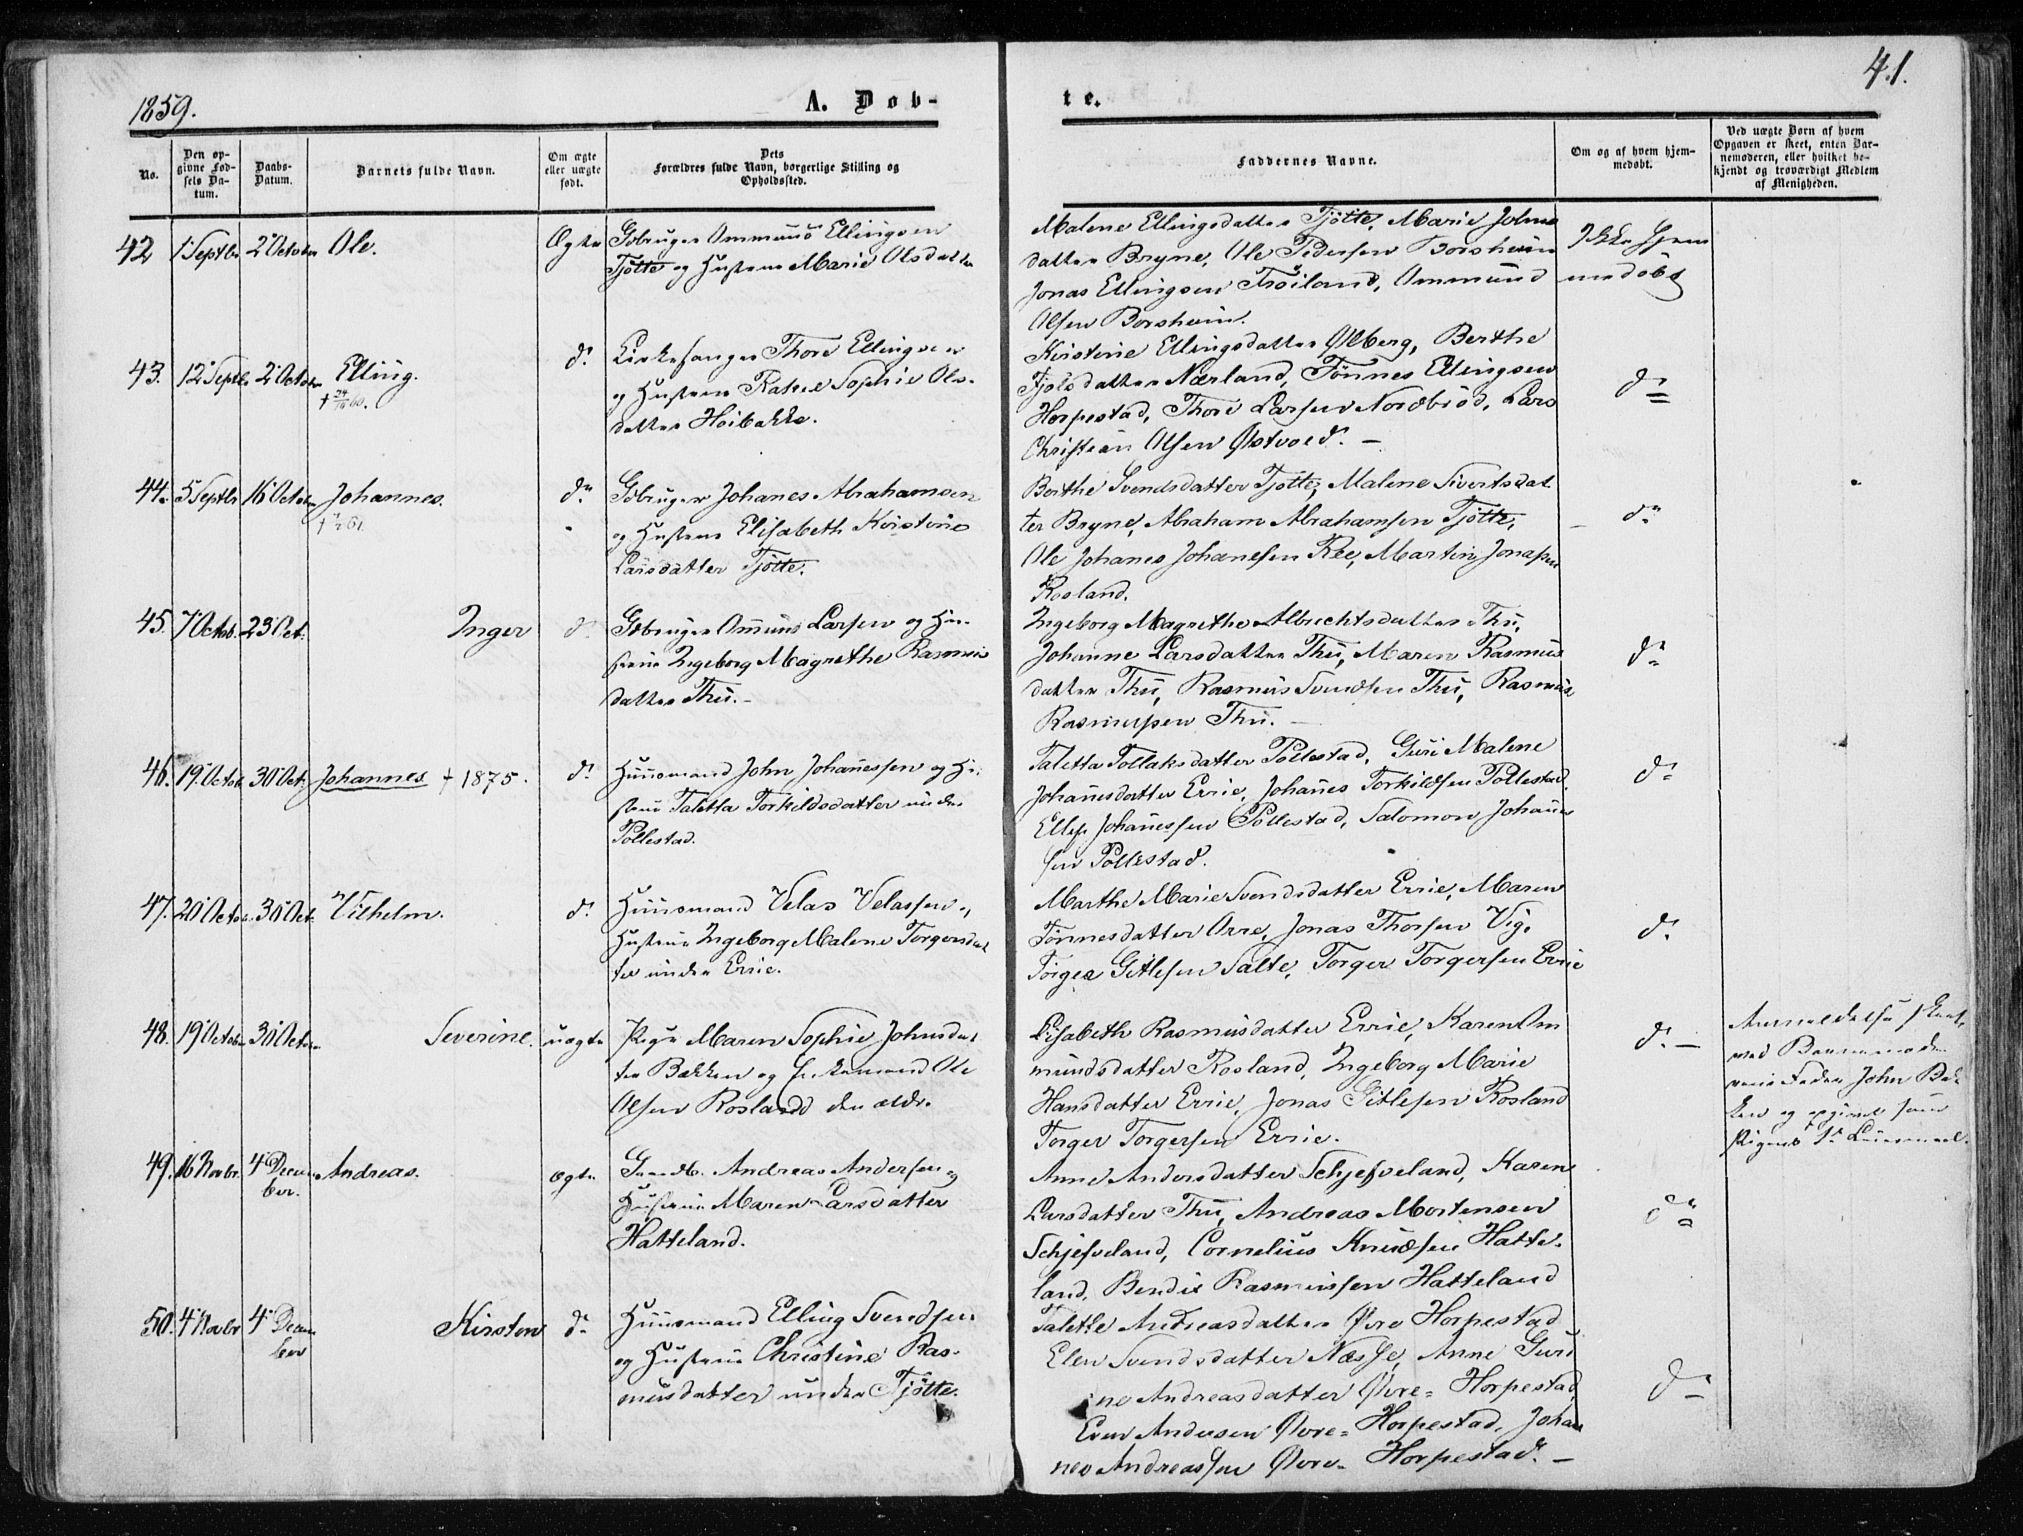 1859.
A. Døb-
te.
41.
No.
Den op-
givne Fød-
sels Da-
tum.
Daabs-
Datum.
Barnets fulde Navn.
Om ægte
eller uægte
født.
Dets
Forældres fulde Navn, borgerlige Stilling og
Opholdssted.
Faddernes Navne.
Om og af hvem hjem-
medøbt.
Ved uægte Børn af hvem
Opgaven er skeet, enten Bar-
nemoderen, eller hvilket be-
kjendt og troværdigt Medlem
af Menigheden.
42 1 Septbr 2 October Ole. Ægte
Gbruger Ommund Ellingsen
Tjøtte og Hustru Marie Olsdatter
Malene Ellingsdatter Tjøtte, Marie Johns
datter Bryne, Ole Pedersen Borsheim
Jonas Ellingsen Frøiland, Ommund
Olsen Borsheim.
Ikke Hjem
medøbt
43. 12 Septbr 2 October Elling. d°
† 24/10 60.
Kirkesanger Thore Ellingsen
og Hustru Rakel Sophie Ols-
datter Høibakke.
Kirstine Ellingsdatter Ølberg, Berthe
datter Nærland, Tønnes Ellingsen
Horpestad, Thore Larsen Nordbrød, Lars
Christian Olsen Østvold. —
d°
44. 5 Septbr 16 October Johannes. d°
Gbruger Johanes Abrahamsen
og Hustru Elisabeth Kirstine
Larsdatter Tjøtte.
Berthe Svendsdatter Tjøtte, Malene Sivertsdat
ter Bryne, Abraham Abrahamsen Tjøtte,
Ole Johanes Johanesen Ree, Martin Jonasen
Rosland.
d°
45. 7 Octob. 23 Oct. Inger d°
Gbruger Omund Larsen og Hu-
strue Ingeborg Magrethe Rasmus
datter Thu. —
Ingeborg Magrethe Albrechtsdatter Thu,
Johanne Larsdatter Thu, Maren Rasmus
datter Thu, Rasmus Svendsen Thu, Rasmus
Rasmussen Thu. —
d°
46. 19 Octob 30 Oct. Johannes † 1875. d°
Huusmand John Johanessen og Hu-
strue Taletta Torkildsdatter under
Pollestad.
Taletta Tollaksdatter Pollestad, Guri Malene
Johanesdatter Errie, Johanes Torkildsen Pollestad
Johanessen Pollestad, Salomon Johanes
sen Pollestad.
d°
47. 20 October 30 Oct. Vilhelm. d°
Huusmand Velas Velassen,
Hustrue Ingeborg Malene Torgersdat
ter under Errie.
Marthe Marie Svendsdatter Errie, Maren
Tønnesdatter Orre, Jonas Thorsen Vig,
Torger Gitlesen Salte, Torger Torgersen Errie
d°
48. 19 October 30 October Severine. uægte
Pige Maren Sophie Johnsdat
ter Bækken og Enkemand Ole
Olsen Rosland den ældr.
Lisabeth Rasmusdatter Errie, Karen Om
mundsdatter Rosland, Ingeborg Marie
Hansdatter Errie, Jonas Gitlesen Rosland
Torger Torgersen Errie.
d° —
Anmeldelse skeet,
ved Barnemode
rens Fader John Bæk
ken og opgivet som
Pigens 1ste Leiermaal.
49. 16 Novbr. 4 Decem Andreas. ægte
ber.
Andreas Andersen og
Hustrue Maren Larsdatter
Hatteland.
Anne Andersdatter Schjefveland, Karen
Larsdatter Thu, Andreas Mortensen
Schjefveland, Cornelius Knudsen Hatte-
land, Bendix Rasmussen Hatteland
d°
50. 4 Novbr 4 Decem Kirsten d°
ber
Huusmand Elling Svendsen
og Hustrue Christine Ras-
musdatter under Tjøtte.
Talette Andreasdatter Øvre Horpestad
Elen Svendsdatter Næsse, Anne Guri
ne Andreasdatter Øvre= Horpestad,
Even Andersen Øvre= Horpestad, Johan
nes Andreassen Øvre= Horpestad. —
d°